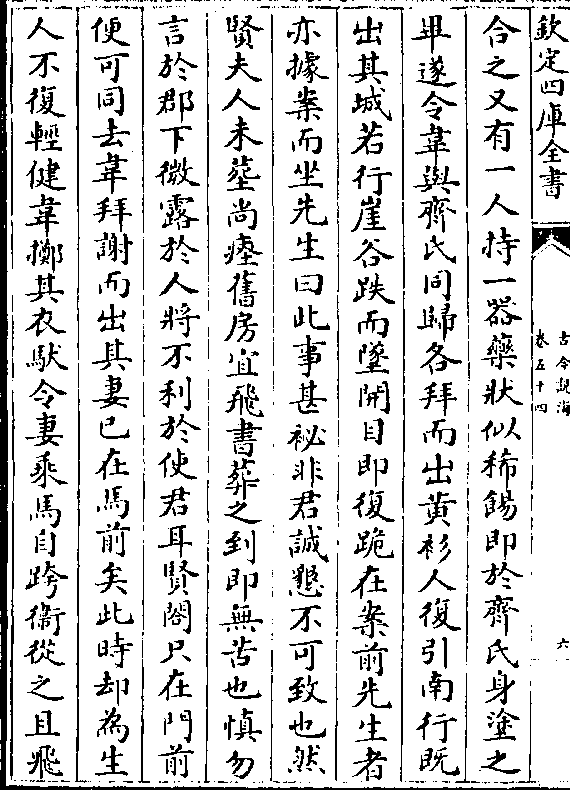 欽定四庫全書
古今説海
卷五十四
六
合之又有一人持一器藥狀似稀餳即於齊氏身塗之
畢遂令韋與齊氏同歸各拜而出黄衫人復引南行既
出其城若行崖谷跌而墜開目即復跪在案前先生者
亦據案而坐先生曰此事甚祕非君誠懇不可致也然
賢夫人未塟尚瘞舊房宜飛書葬之到即無苦也慎勿
言於郡下微露於人將不利於使君耳賢閤只在門前
便可同去韋拜謝而出其妻已在馬前矣此時却為生
人不復輕健韋擲其衣馱令妻乘馬自跨衞從之且飛